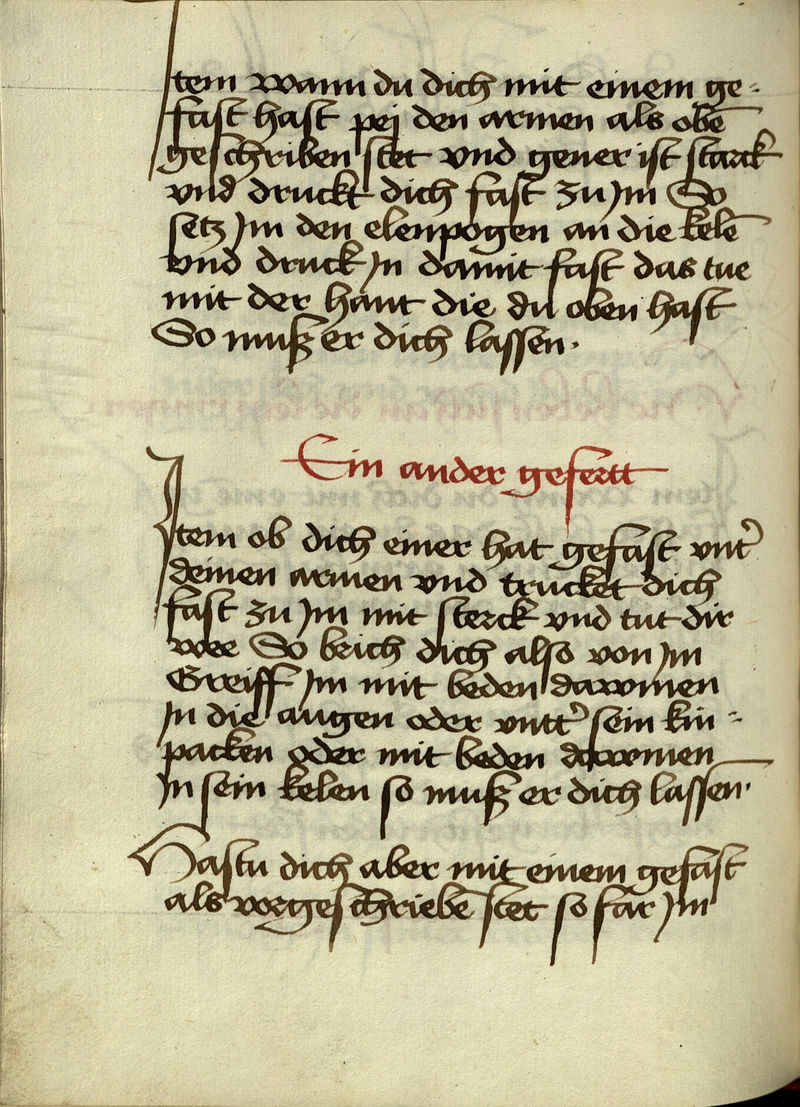 Item wann du dich mit einem ge-
fast hast pej den armen als obē
geschriben stet vnd gener ist starck
vnd druckt dich fast zu Jm So
setz Jm den elenpogen an die kelē
vnd druck Jn damit fast das tue
mit der hant die du oben hast
So muß er dich lassen.
Ein ander gefertt
Item ob dich einer hat gefast vnt'
deinen armen vnd trucket dich
fast zu Jm mit sterck vnd tut dir
wee So brich dich also von Jm
Greiff Jm mit beden dawmen
Jn die augen oder vntt' sein kin-
packen oder mit beden dawmen
Jn sein kelen so muß er dich lassen.
Hastu dich aber mit einem gefast
als vorgeschriebē stet so far Jm